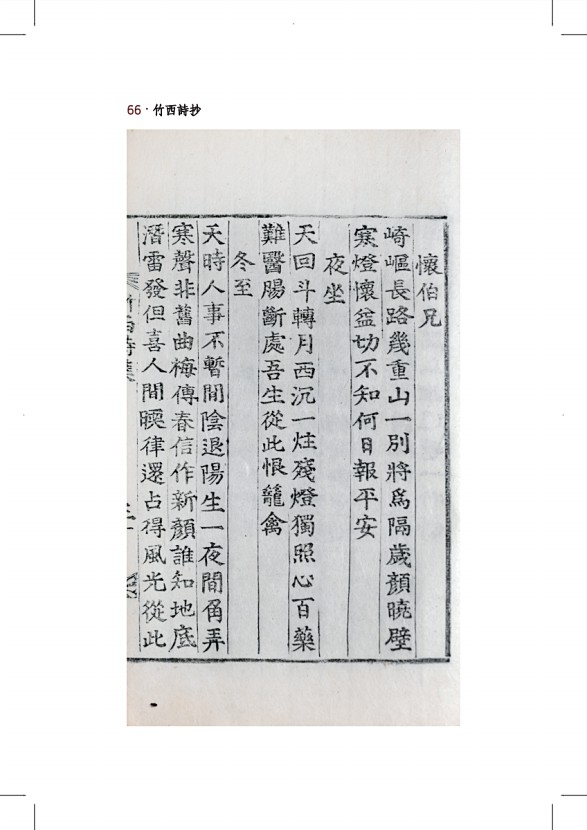 66 · 竹西詩抄
懷伯兄
崎嶇長路幾重山一別將爲隔歲顏曉壁
寒燈懷益切不知何日報平安
夜坐
天回斗轉月西沉一炷殘燈獨照心百藥
難醫腸斷處吾生從此恨籠禽
冬至
天時人事不暫閒陰退陽生一夜間角弄
寒聲非舊曲梅傳春信作新顏誰知地底
潛雷發但喜人間暖律還占得風光從此
竹西詩集